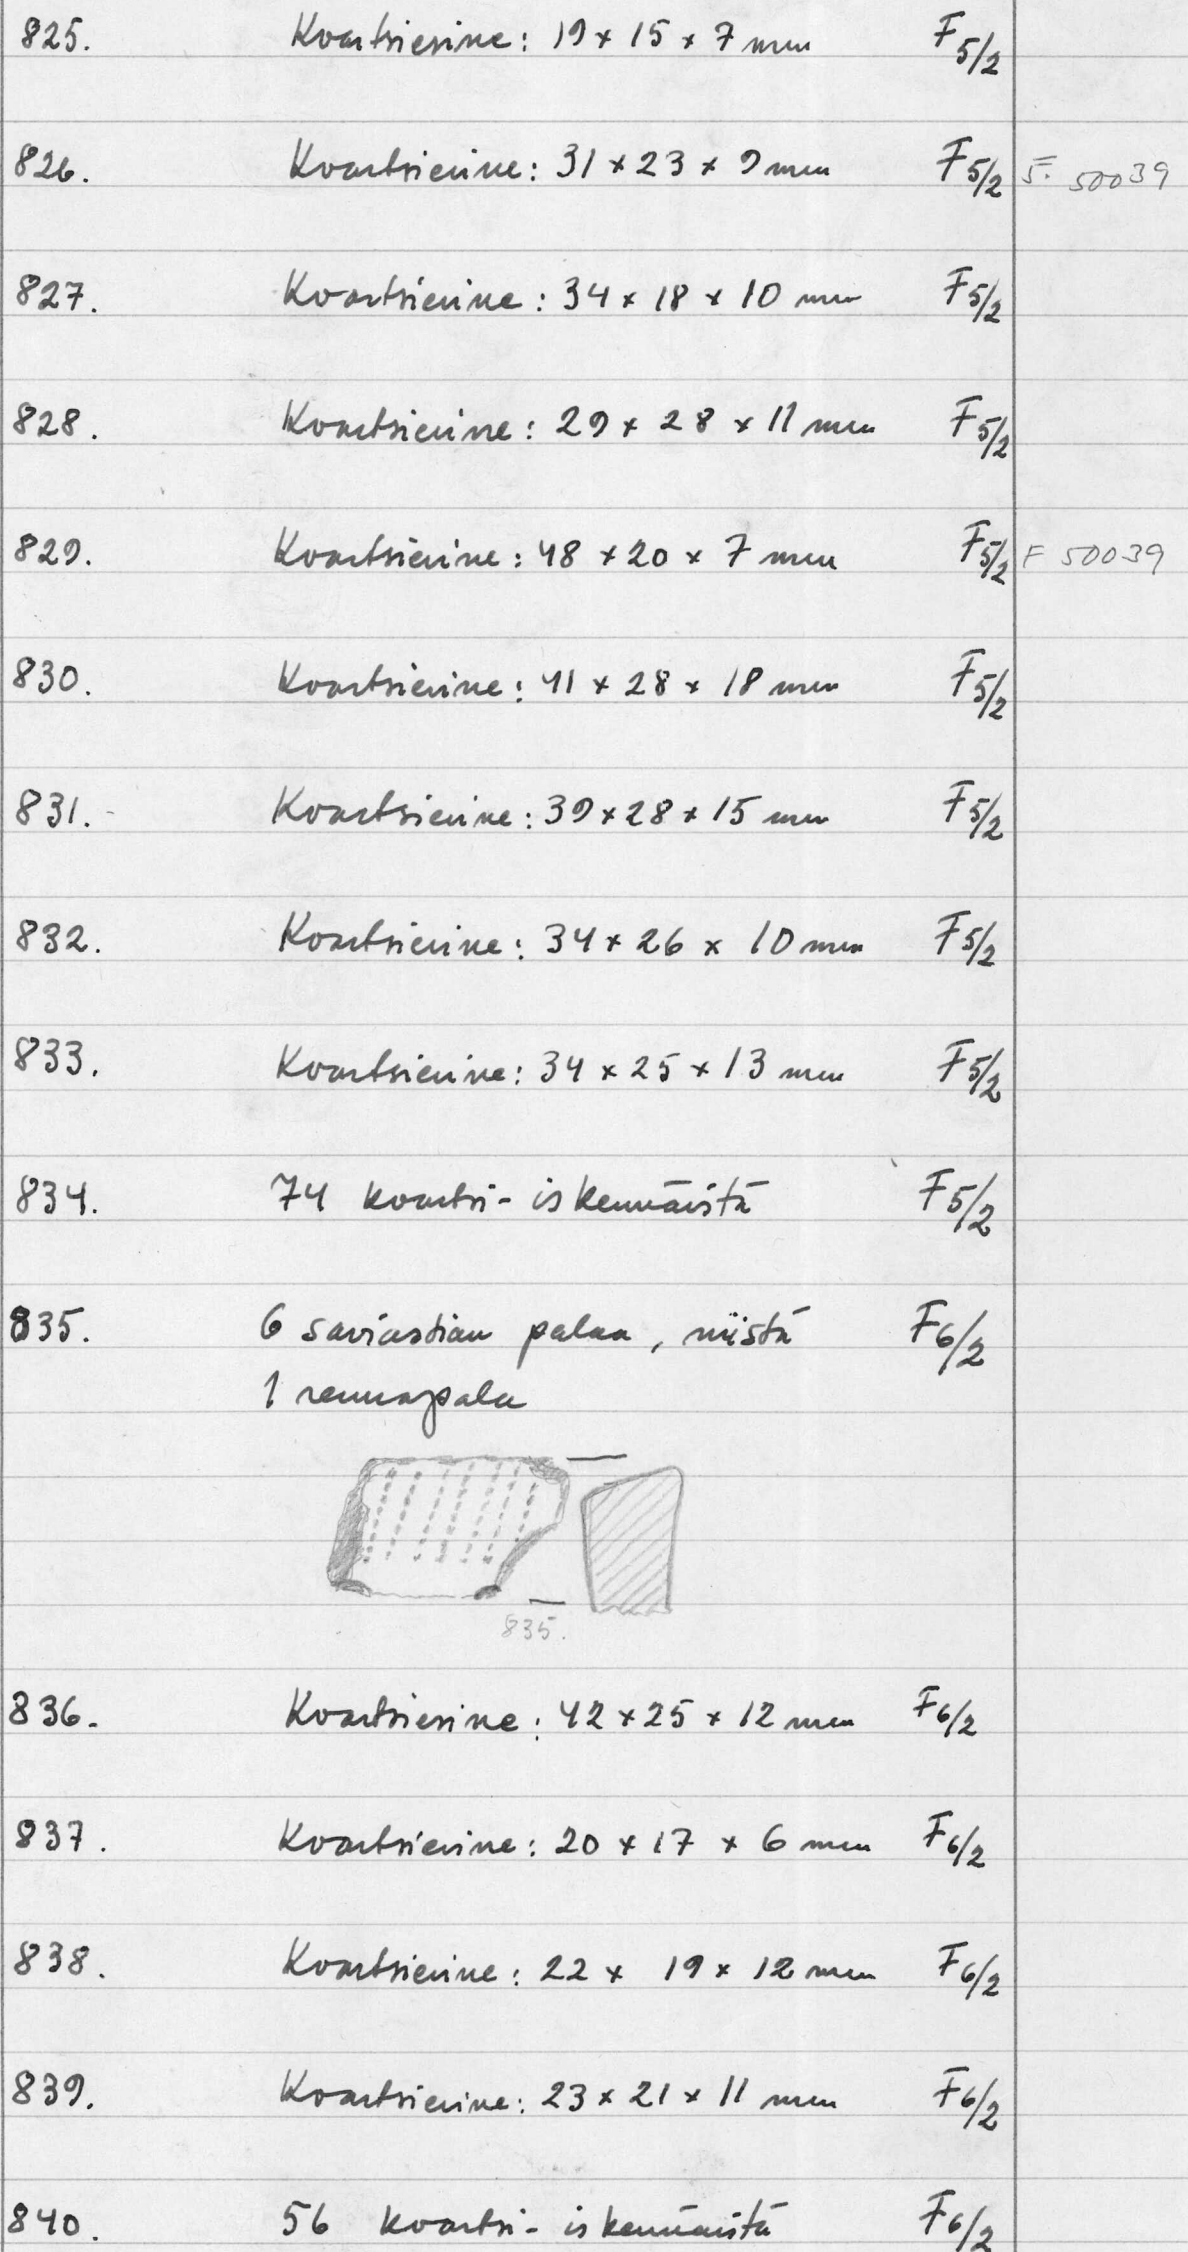 825. Kvartsiesine: 19 x 15 x 7 mm F5/2
826. Kvartsiesine: 31 x 23 x 9 mm F5/2 F. 50039
827. Kvartsiesine: 34 x 18 x 10 mm F5/2
828. Kvartsiesine: 29 x 28 x 11 mm F5/2
829. Kvartsiesine: 48 x 20 x 7 mm F5/2 F 50039
830. Kvartsiesine: 41 x 28 x 18 mm F5/2
831. Kvartsiesine: 39 x 28 x 15 mm F5/2
832. Kvartsiesine: 34 x 26 x 10 mm F5/2
833. Kvartsiesine: 34 x 25 x 13 mm F5/2
834. 74 kvartsi-iskennäistä F5/2
835. 6 saviastian palaa, niistä F6/2
1 reunapala
835.
836. Kvartsiesine: 42 x 25 x 12 mm F6/2
837. Kvartsiesine: 20 x 17 x 6 mm F6/2
838. Kvartsiesine: 22 x 19 x 12 mm F6/2
839. Kvartsiesine: 23 x 21 x 11 mm F6/2
840. 56 kvartsi-iskennäistä F6/2